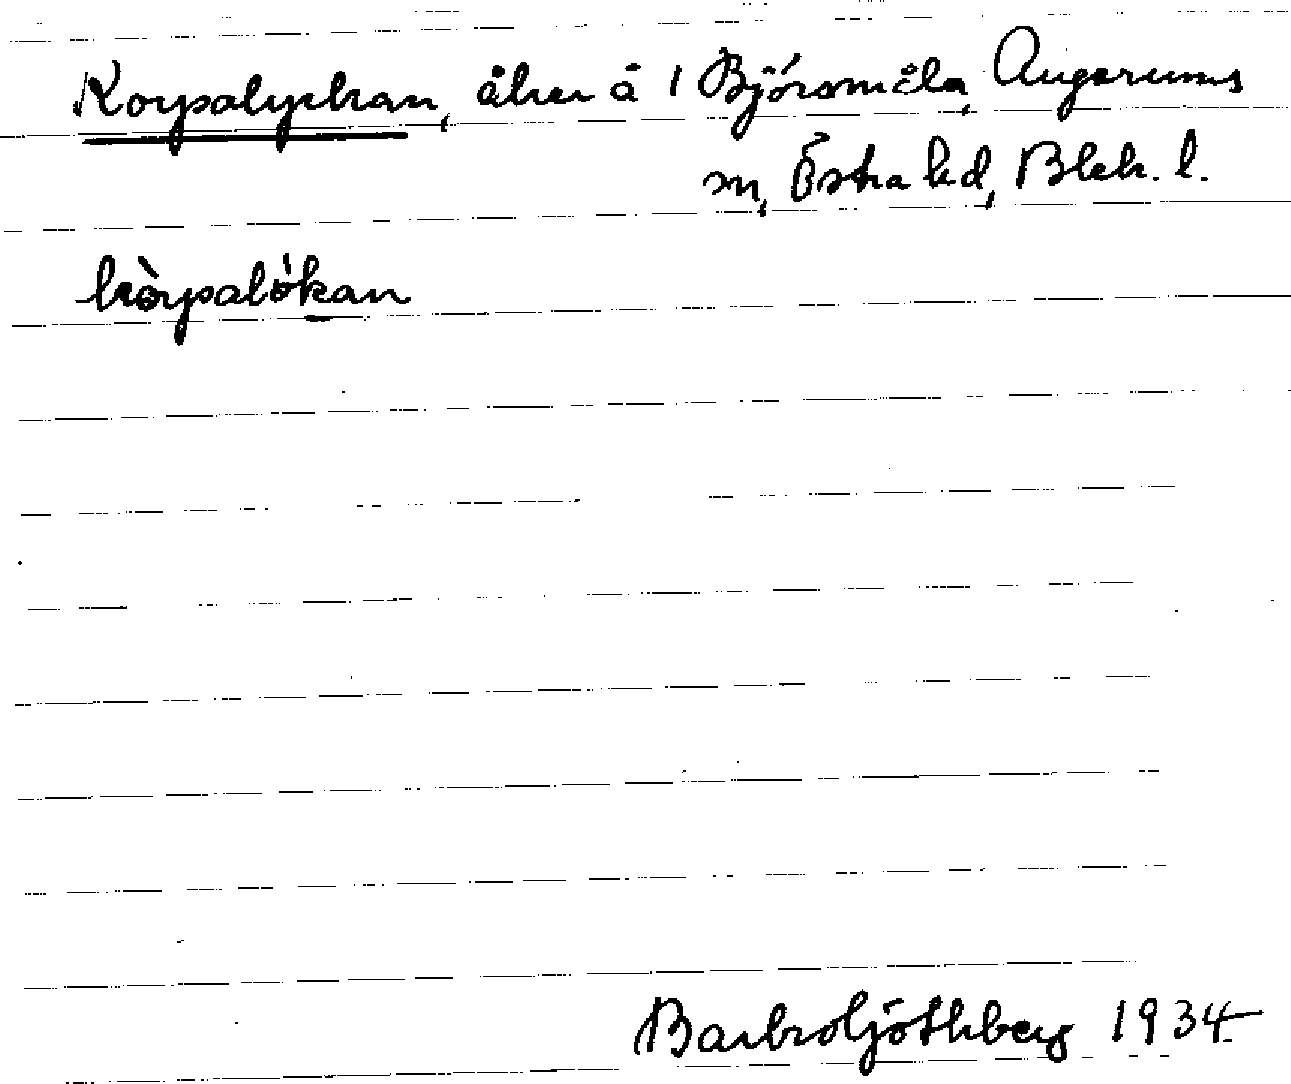 Korpalyckan, åker å 1 Björsmåla, Augerums
sn, Östra hd, Blek. l.
kòrpalỳkan
Barbro Ljöthberg 1934